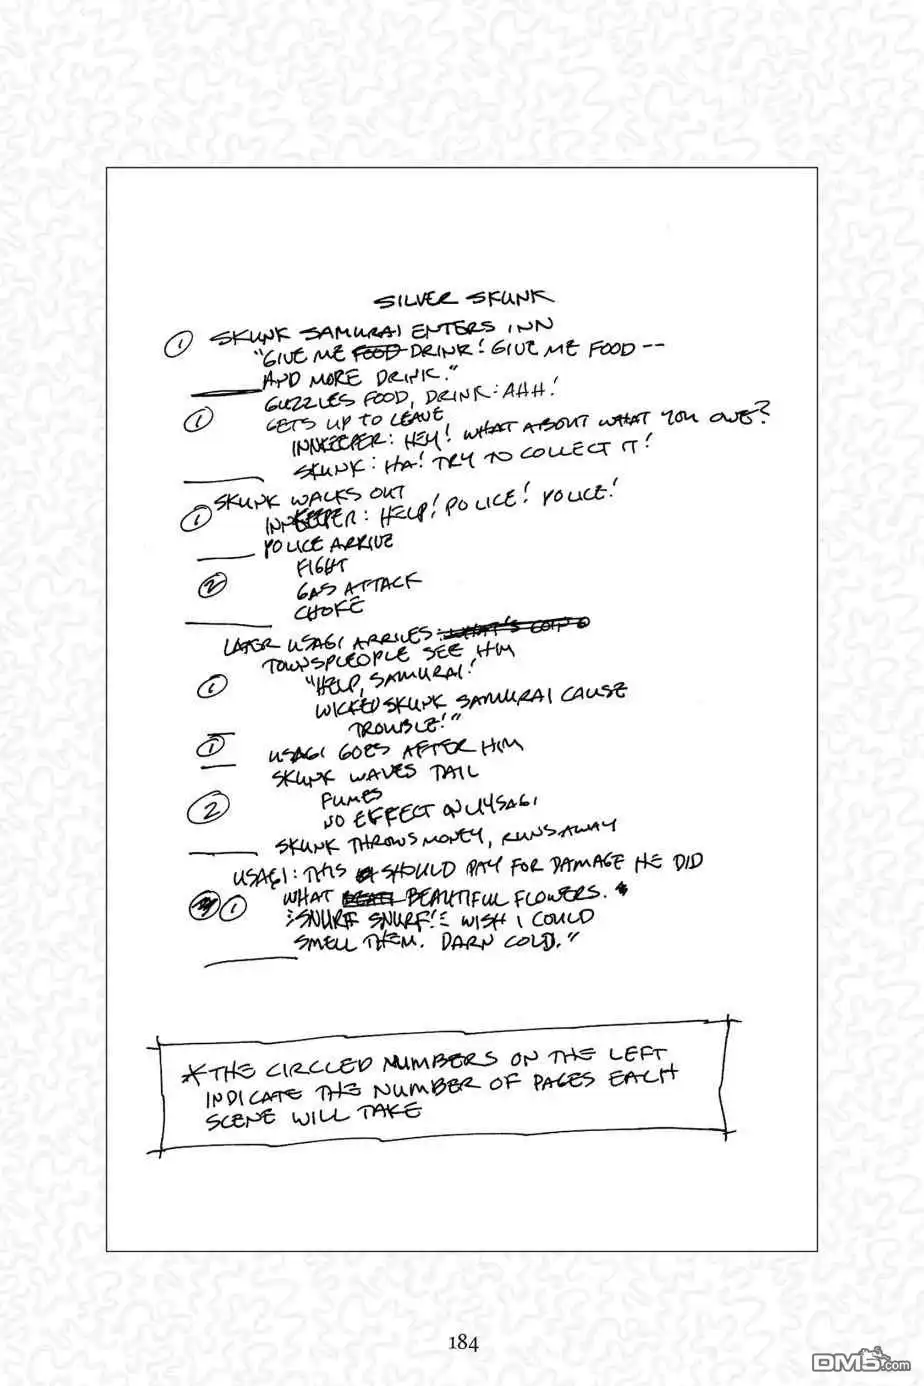 SILVER SKUNK
1 SKUNK SAMURAI ENTERS INN
"GIVE ME FOOD DRINK! GIVE ME FOOD --
AND MORE DRINK."
GUZZLES FOOD, DRINK: AHH!
1 GETS UP TO LEAVE
INNKEEPER: HEY! WHAT ABOUT WHAT YOU OWE?
SKUNK: HA! TRY TO COLLECT IT!
SKUNK WALKS OUT
1 INNKEEPER: HELP! POLICE! POLICE!
POLICE ARRIVE
FIGHT
2 GAS ATTACK
CHOKE
LATER USAGI ARRIVES:
TOWNSPLEOPLE SEE HIM
1 "HELP, SAMURAI!
WICKED SKUNK SAMURAI CAUSE
TROUBLE!"
1 USAGI GOES AFTER HIM
SKUNK WAVES TAIL
2 FUMES
NO EFFECT ON USAGI
SKUNK THROWS MONEY, RUNS AWAY
USAGI: THIS SHOULD PAY FOR DAMAGE HE DID
1 WHAT BEAUTIFUL FLOWERS.
SNURF SNURF! WISH I COULD
SMELL THEM. DARN COLD."
*THE CIRCLED NUMBERS ON THE LEFT
INDICATE THE NUMBER OF PAGES EACH
SCENE WILL TAKE
184
DM5.com